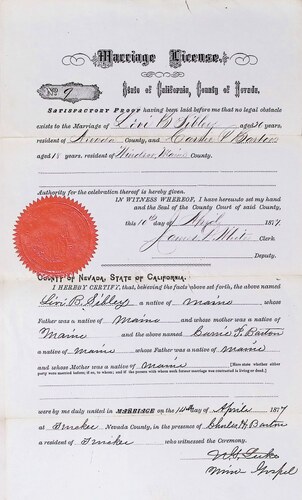 Marriage License.
No. 9
State of California, County of Nevada.
SATISFACTORY PROOF having been laid before me that no legal obstacle
exists to the Marriage of Levi B Sibley aged 31 years,
resident of Nevada County, and Carrie F Barton
aged 18 years, resident of Windsor Maine County.
Authority for the celebration thereof is hereby given.
IN WITNESS WHEREOF, I have hereunto set my hand
and the Seal of the County Court of said County,
this 10th day of April 1877
Clerk.
Deputy.
COUNTY OF NEVADA, STATE OF CALIFORNIA.
I HEREBY CERTIFY, that, believing the facts above set forth, the above named
Levi B. Sibley a native of Maine whose
Father was a native of Maine and whose mother was a native of
Maine and the above named Carrie F. Barton
a native of Maine whose Father was a native of Maine
and whose Mother was a native of Maine [Here state whether either
party were married before; if so, to whom; and if the person with whom such former marriage was contracted is living or dead.]
were by me duly united in MARRIAGE on the 14th day of April 1877
at Truckee Nevada County, in the presence of H Barton
a resident of Truckee who witnessed the Ceremony.
Gospel